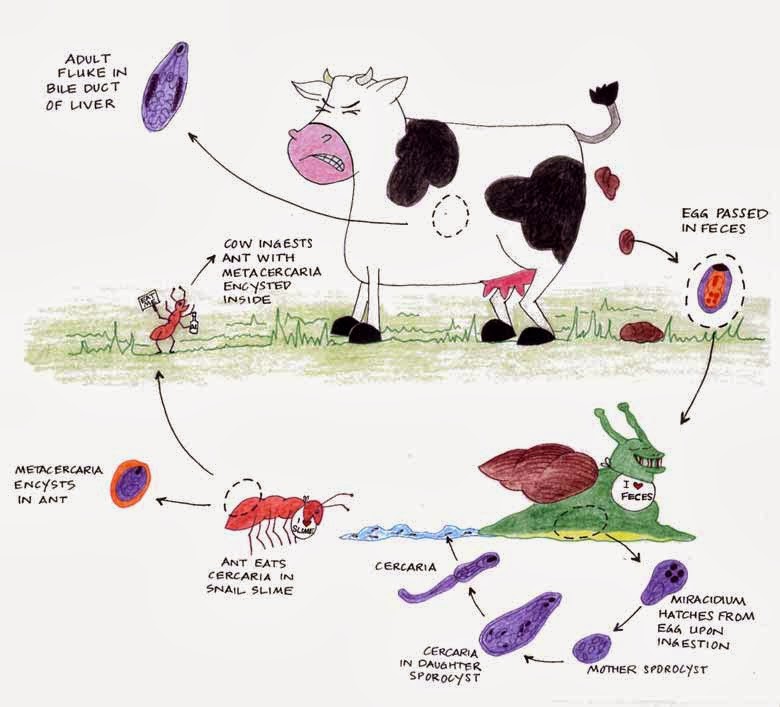 ADULT
FLUKE IN
BILE DUCT
OF LIVER
EGG PASSED
IN FECES
COW INGESTS
ANT WITH
METACERCARIA
ENCYSTED
INSIDE
EAT
ME
METACERCARIA
ENCYSTS
IN ANT
I ♥
FECES
SLIME
ANT EATS
CERCARIA IN
SNAIL SLIME
CERCARIA
MIRACIDIUM
HATCHES FROM
EGG UPON
INGESTION
CERCARIA
IN DAUGHTER
SPOROCYST
MOTHER SPOROCYST